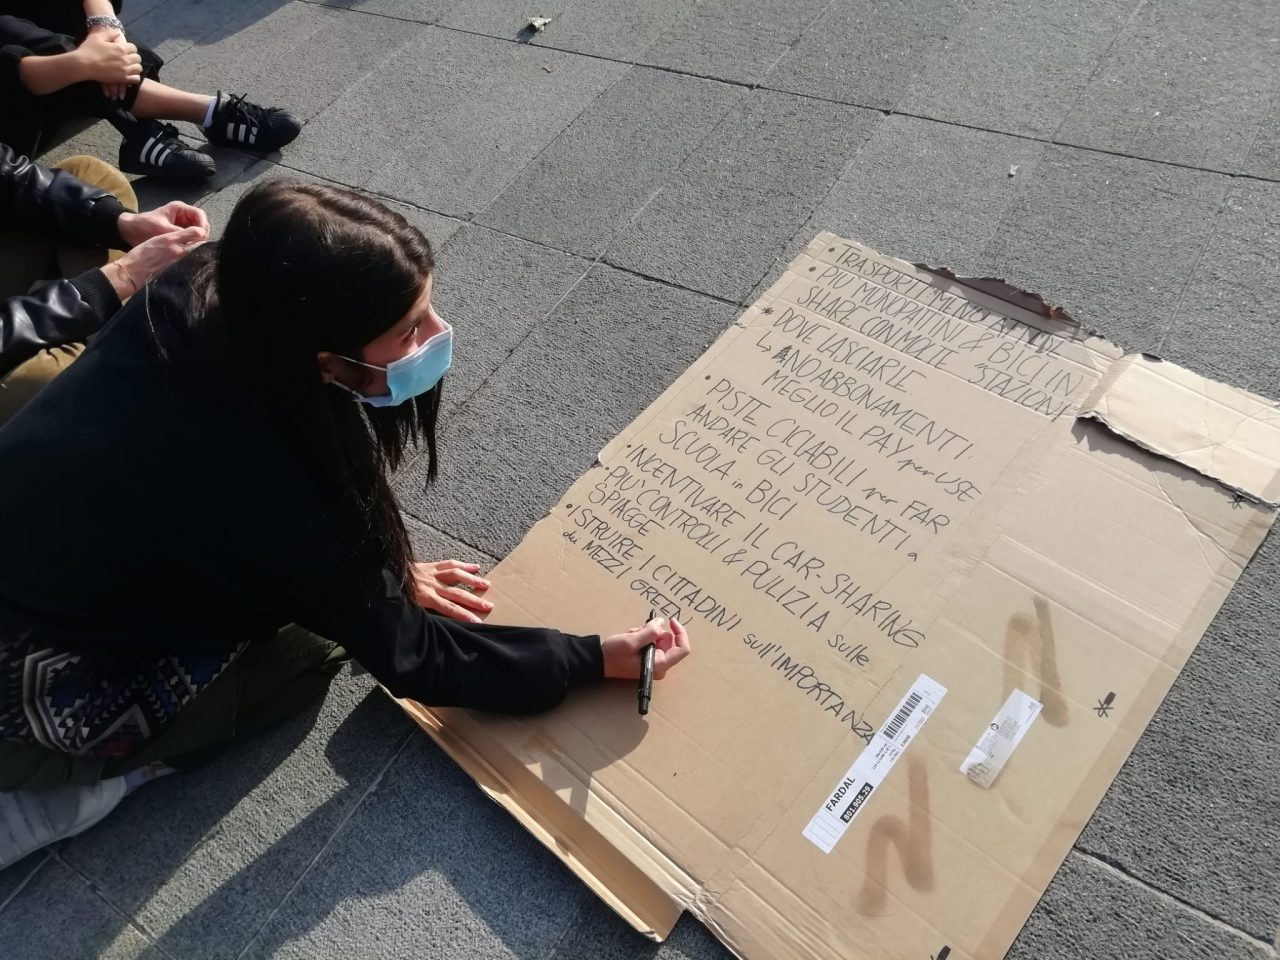 • TRASPORTI MENO ATTIVI
• PIÙ MONOPATTINI & BICI IN
SHARE CON MOLTE "STAZIONI
* DOVE LASCIARLE
↳ NO ABBONAMENTI.
MEGLIO IL PAY per USE
• PISTE CICIABILI per FAR
ANDARE GLI STUDENTI a
SCUOLA in BICI
• INCENTIVARE IL CAR-SHARING
• PIÙ CONTROLLI & PULIZIA sulle
SPIAGGE
• ISTRUIRE I CITTADINI sull'IMPORTANZA
dei MEZZI GREEN
FARDAL
801.908.29